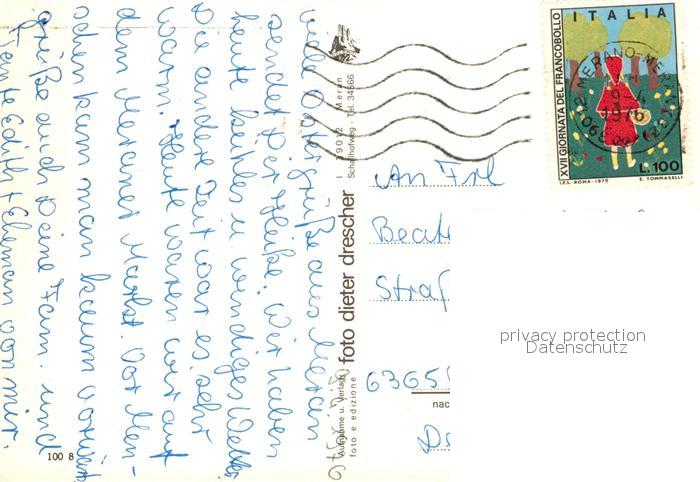 viele Ostergrüße aus Meran
sendet Dir Heiße. Wir haben
heute kühles u. windiges Wetter
Die andere Zeit war es sehr
warm. Heute waren wir auf
dem Meraner Markt. Vor Men-
schen kam man kaum vorwärts
Grüße auch Deine Fam. und
Tante Edith + Clemens von mir.
100 8
Aufnahme u. Verlag:
foto e edizione
foto dieter drescher
I - 39012 - Meran
Schallhofweg - Tel. 34566
XVII GIORNATA DEL FRANCOBOLLO
ITALIA
L.100
I.P.S.-ROMA-1975
E. TOMMASELLI
39012 MERANO-ME
1976
An Frl
Beat
Straß
6365
nac
privacy protection
Datenschutz